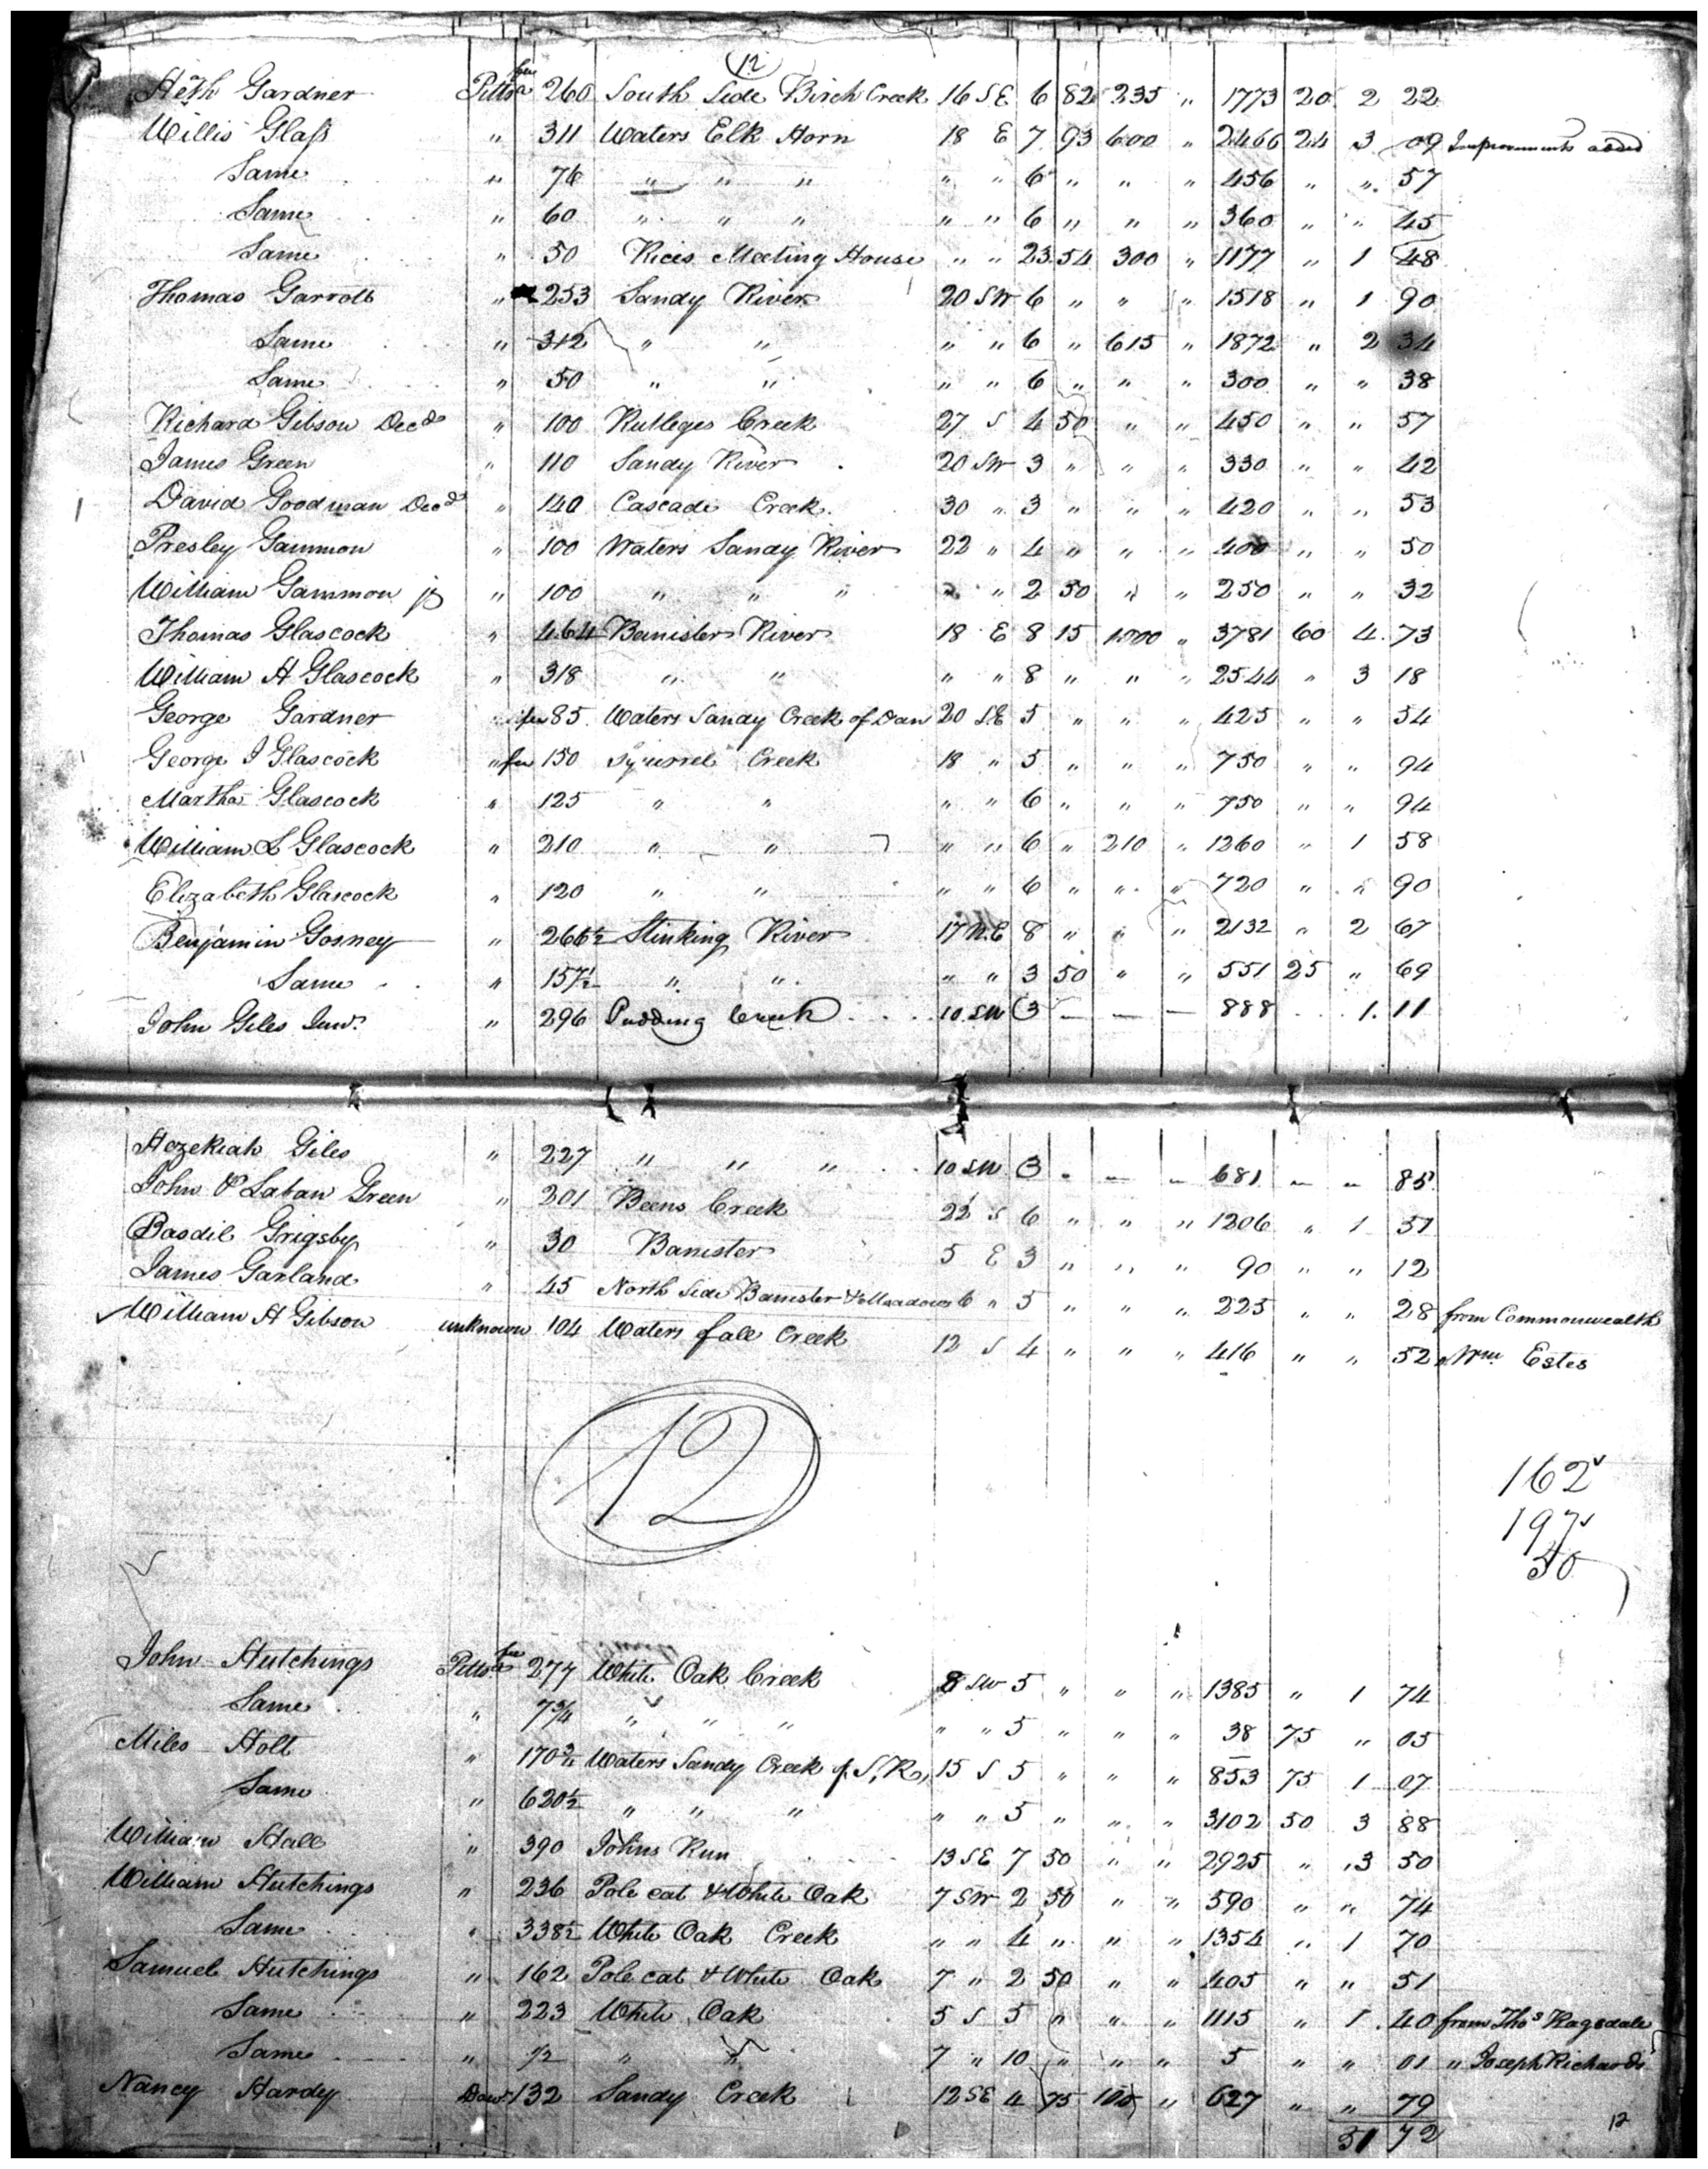 12
Heth Gardner Pittsa fee 260 South Side Birch Creek 16 SE 6 82 235 " 1773 20 2 22
Willis Glass " 311 Waters Elk Horn 18 E 7 93 600 " 2466 24 3 09 Improvements added
Same " 76 " " " " " 6 " " " 456 " " 57
Same " 60 " " " " " 6 " " " 360 " " 45
Same " 50 Rices Meeting House " " 23 54 300 " 1177 " 1 48
Thomas Garrott " 253 Sandy River 20 SW 6 " " " 1518 " 1 90
Same " 312 " " " " 6 " 615 " 1872 " 2 34
Same " 50 " " " " 6 " " " 300 " " 38
Richard Gibson Decd " 100 Rutleges Creek 27 S 4 50 " " 450 " " 57
James Green " 110 Sandy River 20 SW 3 " " " 330 " " 42
David Goodman Decd " 140 Cascade Creek 30 " 3 " " " 420 " " 53
Presley Gammon " 100 Waters Sandy River 22 " 4 " " " 400 " " 50
William Gammon jr " 100 " " " " " 2 50 " " 250 " " 32
Thomas Glascock " 464 Banister River 18 E 8 15 1000 " 3781 60 4 73
William H Glascock " 318 " " " " 8 " " " 2544 " 3 18
George Gardner " fee 85 Waters Sandy Creek of Dan 20 SE 5 " " " 425 " " 54
George J Glascock " fee 150 Squirrel Creek 18 " 5 " " " 750 " " 94
Martha Glascock " 125 " " " " 6 " " " 750 " " 94
William L Glascock " 210 " " " " 6 " 210 " 1260 " 1 58
Elizabeth Glascock " 120 " " " " 6 " " " 720 " " 90
Benjamin Gosney " 266½ Stinking River 17 N.E 8 " " " 2132 " 2 67
Same " 157½ " " " " 3 50 " " 551 25 " 69
John Giles Junr. " 296 Pudding Creek 10 SW 3 — — — 888 1 11
Hezekiah Giles " 227 " " " 10 SW 3 " " " 681 " " 85
John & Laban Green " 201 Beens Creek 22 S 6 " " " 1206 " 1 51
Basdil Grigsby " 30 Banister 5 E 3 " " " 90 " " 12
James Garland " 45 North Side Banister & Meadows 6 " 5 " " " 225 " " 28 from Commonwealth
William H Gibson unknown 104 Waters fall Creek 12 S 4 " " " 416 " " 52 " Wm Estes
12
162
197
50
John Hutchings Pittsa fee 277 White Oak Creek 8 SW 5 " " " 1385 " 1 74
Same " 7¾ " " " " " 5 " " " 38 75 " 05
Miles Holt " 170¾ Waters Sandy Creek of S.R. 15 S 5 " " " 853 75 1 07
Same " 620½ " " " " " 5 " " " 3102 50 3 88
William Hall " 390 Johns Run 13 SE 7 50 " " 2925 " 3 50
William Hutchings " 236 Pole cat & White Oak 7 SW 2 50 " " 590 " " 74
Same " 338½ White Oak Creek " " 4 " " " 1354 " 1 70
Samuel Hutchings " 162 Pole cat & White Oak 7 " 2 50 " " 405 " " 51
Same " 223 White Oak 5 S 5 " " " 1115 " 1 40 from Thos Ragsdale
Same " ½ " " 7 " 10 " " " 5 " " 01 " Joseph Richards
Nancy Hardy Dow. 132 Sandy Creek 12 SE 4 75 100 " 627 " " 79
51 72
12